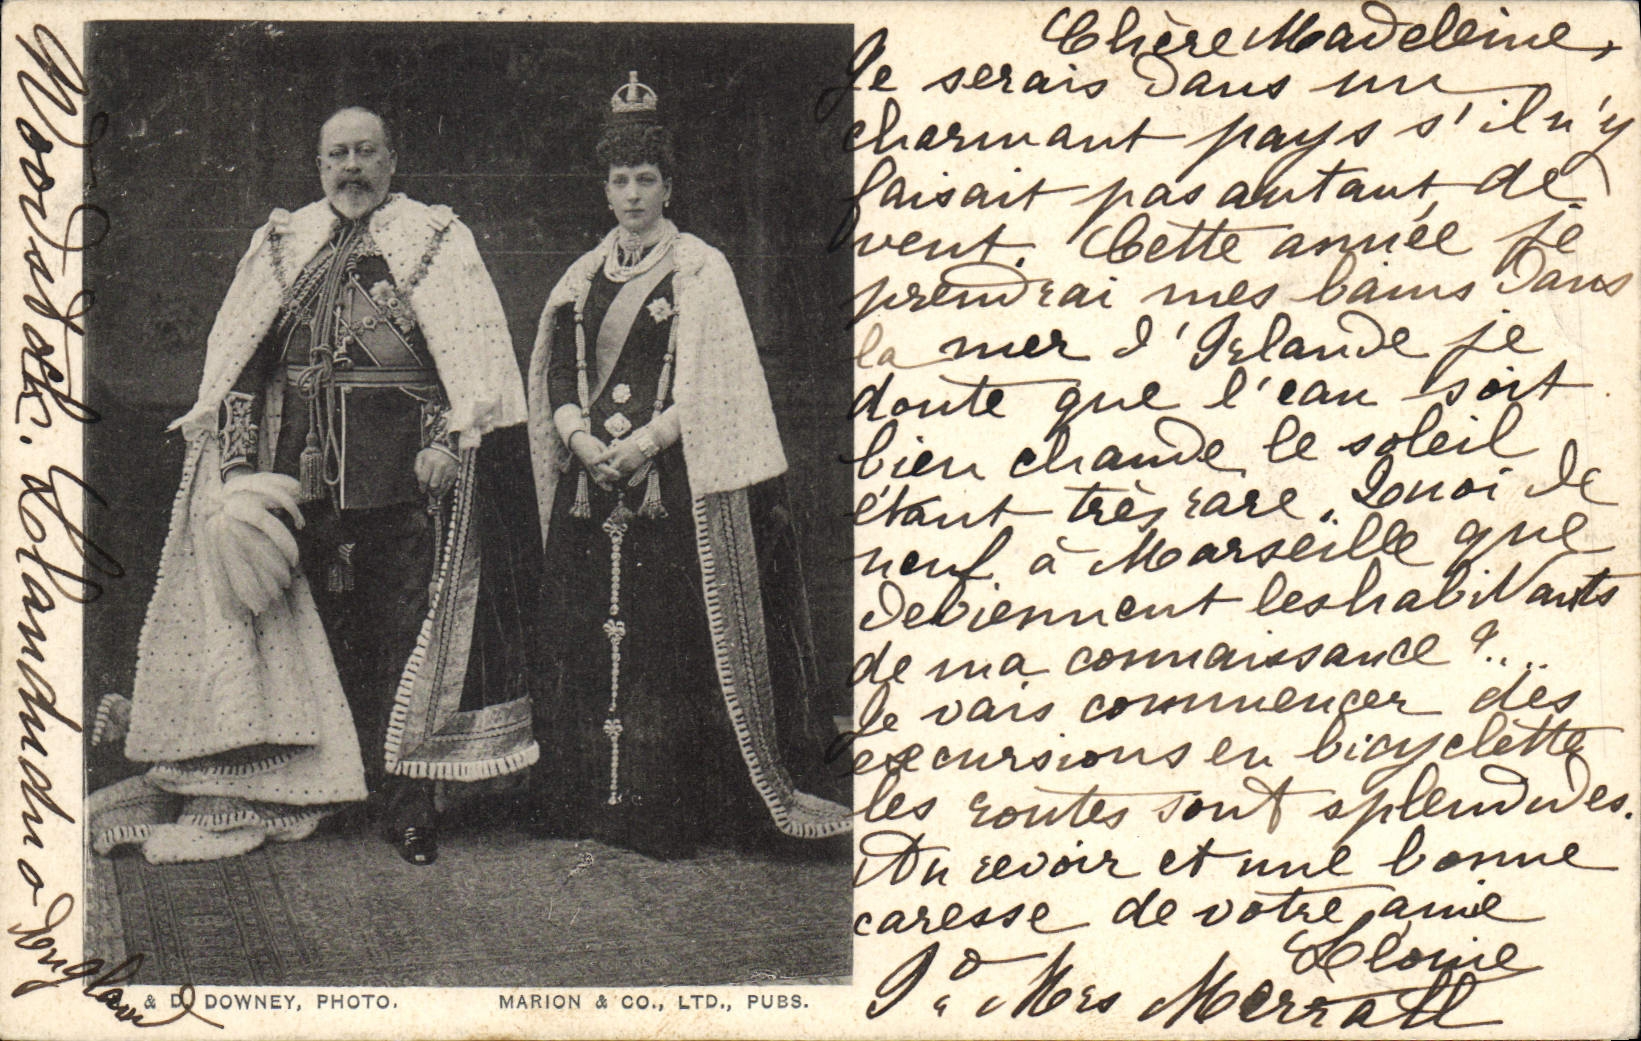 Chère Madeleine,
Je serais dans un
charmant pays s'il n'y
faisait pas autant de
vent. Cette année je
prendrai mes bains dans
la mer d'Irlande je
doute que l'eau soit
bien chaude le soleil
étant très rare. Quoi de
neuf à Marseille que
deviennent les habitants
de ma connaissance ?...
Je vais commencer des
excursions en bicyclette
les routes sont splendides.
Au revoir et une bonne
caresse de votre amie
Mrs
Woodstock. Llandudno
England
& D. DOWNEY, PHOTO. MARION & CO., LTD., PUBS.